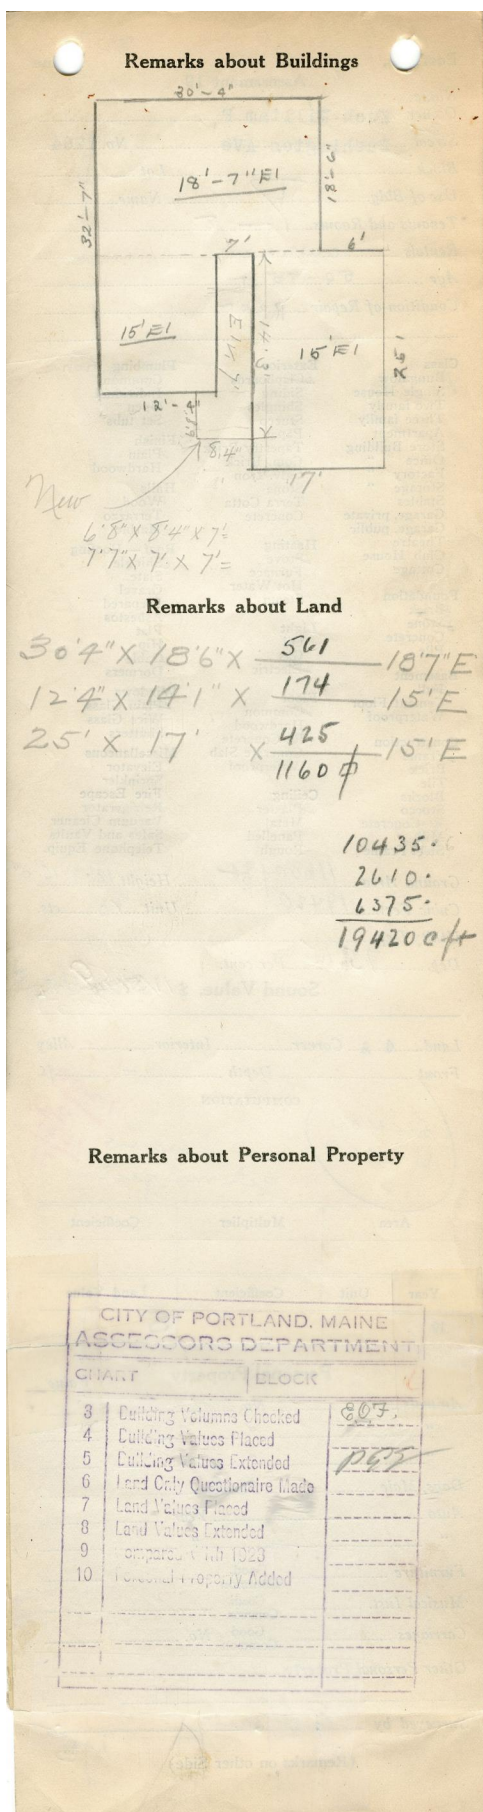 Remarks about Buildings
30'-4"
18'-7" E1
32'-7"
18'-6"
7'
6'
15' E1
14'-3"
15' E1
25'
12'-4"
8'4"
17'
New
6'8" X 8'4" X 7'=
7'7" X 7' X 7'=
Remarks about Land
30'4" X 18'6" X 561 18'7" E
12'4" X 14'1" X 174 15' E
25' X 17' X 425 15' E
1160
10435.
2610.
6375.
19420 c ft
Remarks about Personal Property
CITY OF PORTLAND, MAINE
ASSESSORS DEPARTMENT
CHART BLOCK
3 Building Volumns Checked E.O.F.
4 Building Values Placed
5 Building Values Extended
6 Land Only Questionaire Made
7 Land Values Placed
8 Land Values Extended
9 Compared With 1923
10 Personal Property Added